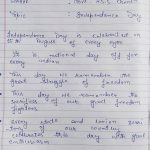 Topic : Independence Day
Independence Day is celebrated on
15th August of every year
It is national day of for
every indian
This day we remember the
great struggle of freedom
This day we remember the
sacrifices of our great freedom
fighters
Every state and union
of our country
celebrates this day with great
enthusiasm